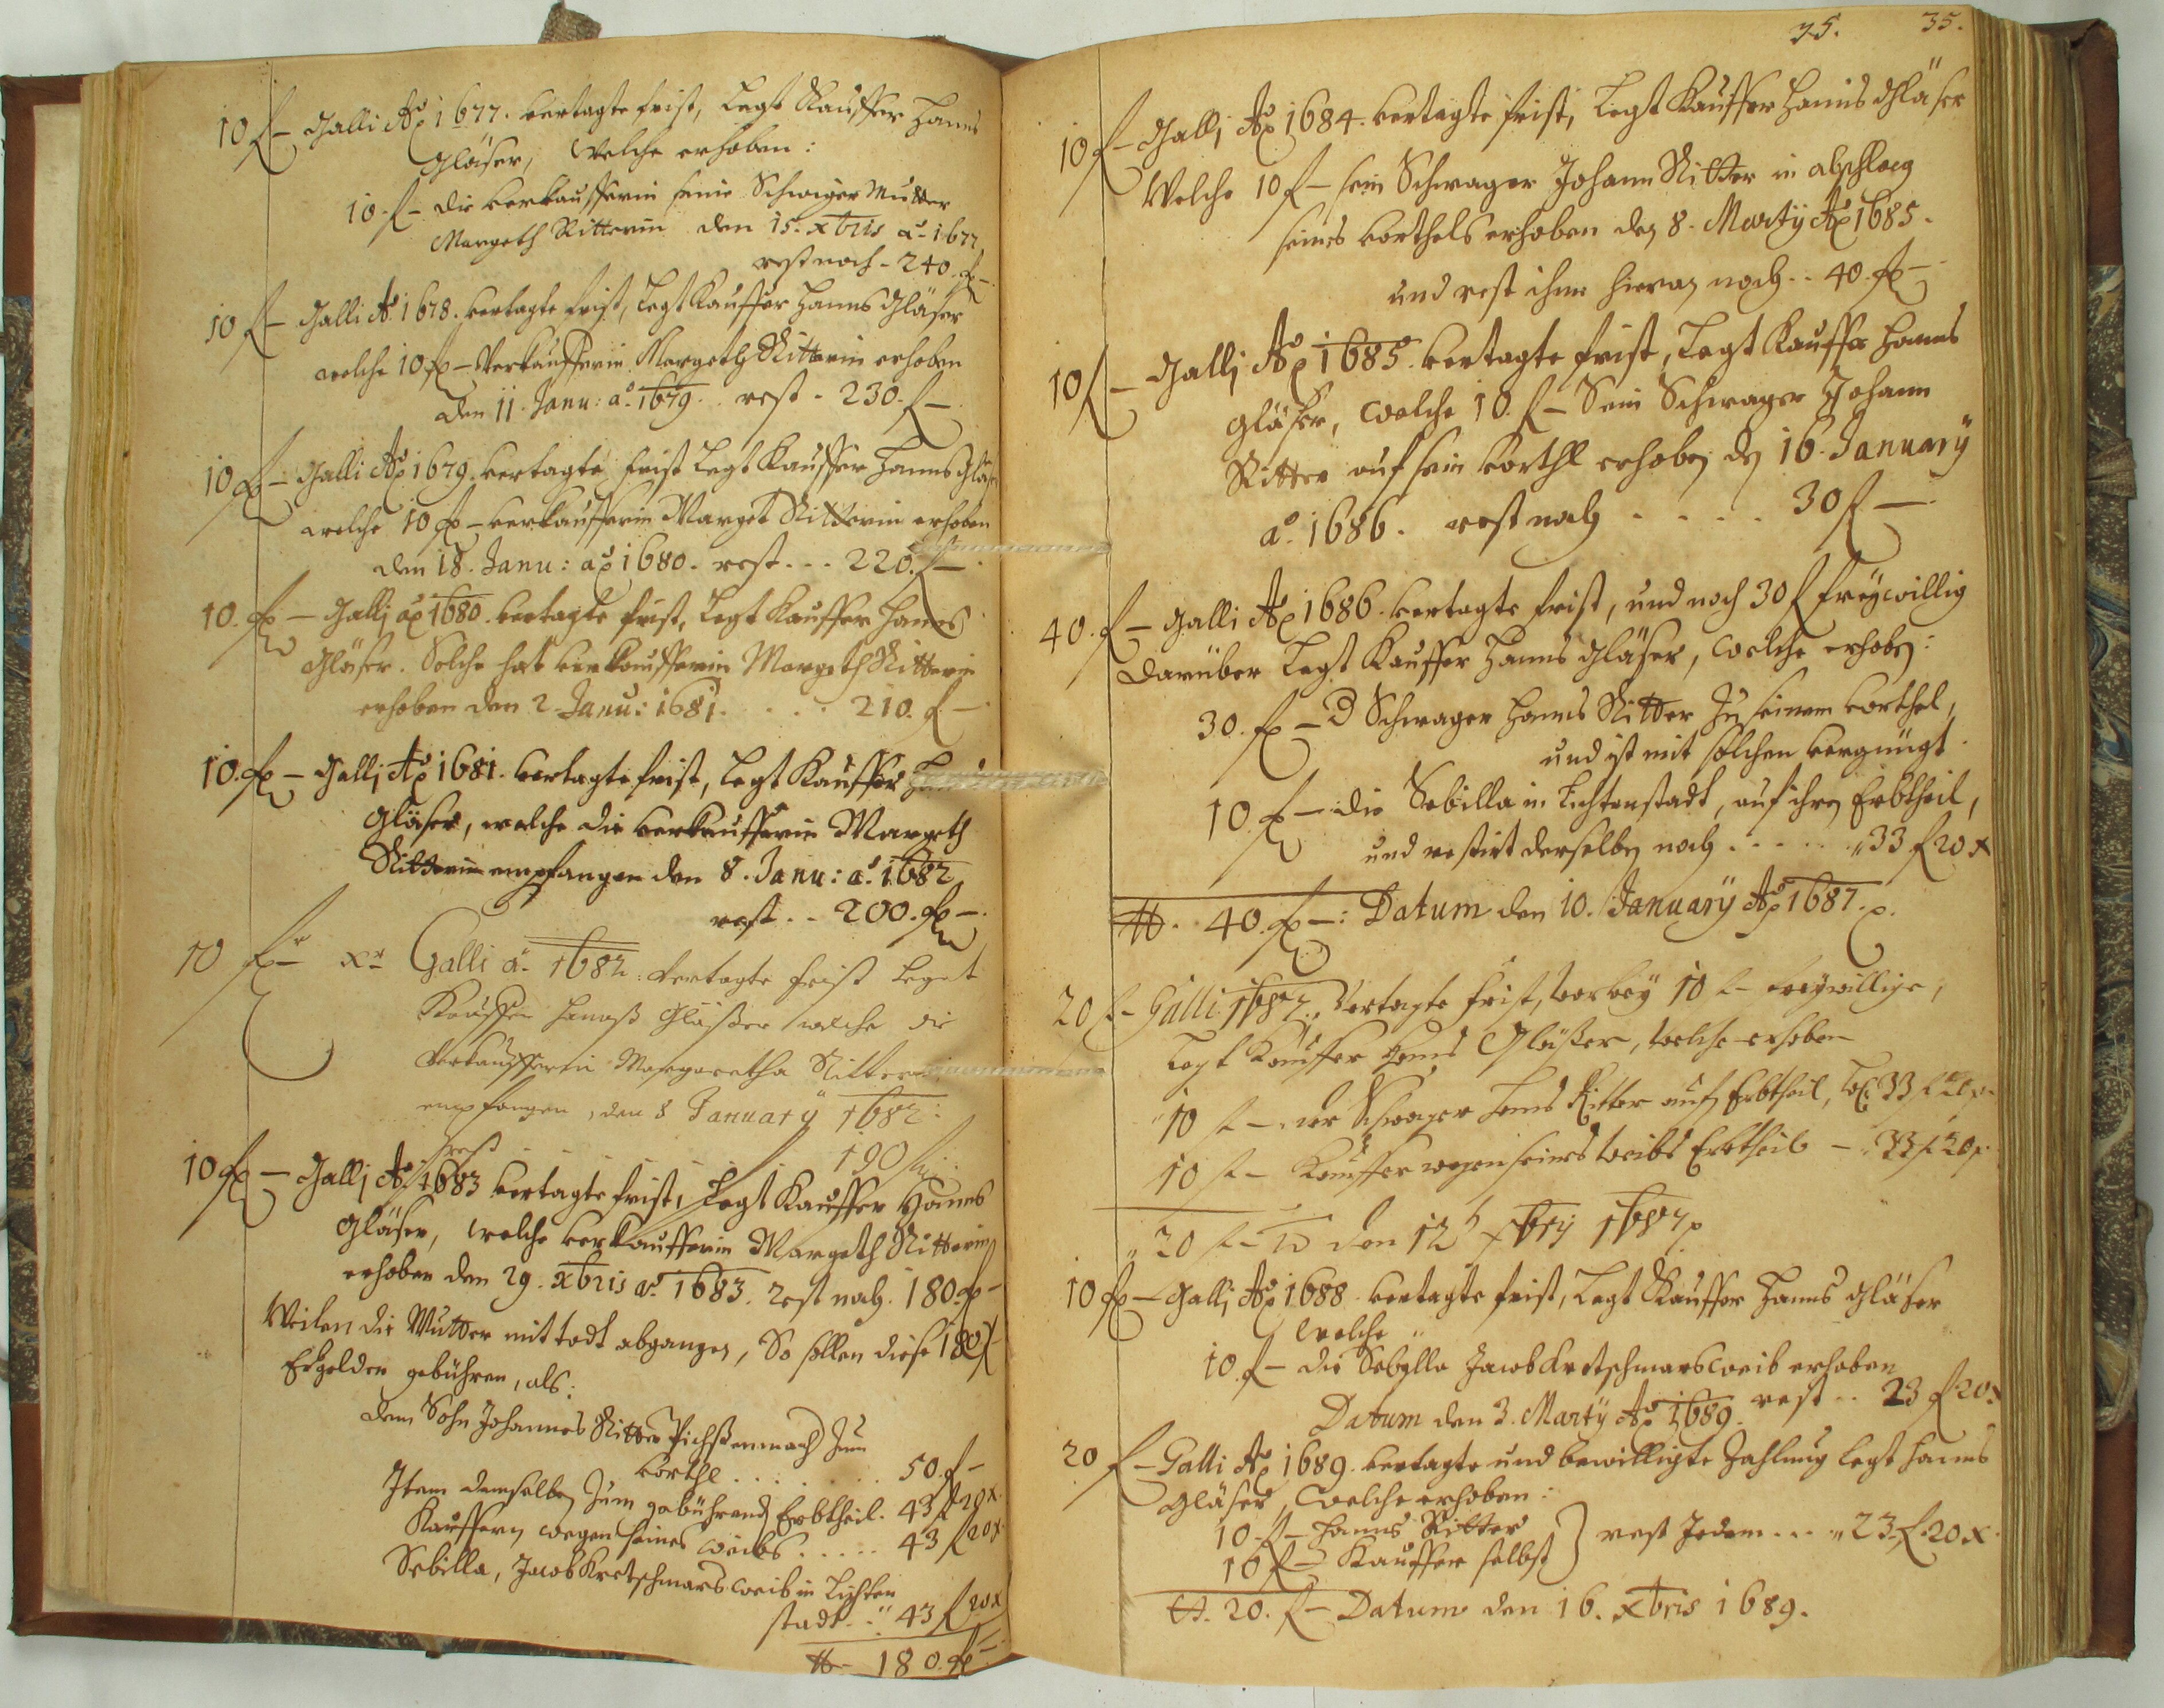 10 f – Galli Aō 1677. vertagte frist, Legt Kauffer Hanns
Gläser, Welche erhoben:
10. f – die verkaufferin seine Schwiger Mutter
Margeth Ritterin den 15. xbris aō 1677,
rest noch – 240. f –
10 f – Galli Aō 1678. vertagte frist, Legt Kauffer Hanns Gläser
welche 10 f – Verkaufferin Margeth Ritterin erhoben
den 11. Janu: aō 1679. rest – 230. f –
10 f – Galli Aō 1679. vertagte frist Legt Kauffer Hanns Gläser
welche 10 f – verkaufferin Marget Ritterin erhoben
den 18. Janu: aō 1680. rest . . . 220. f –
10. f – Gallj aō 1680. vertagte frist, Legt Kauffer Hanns
Gläser. Solche hat verkaufferin Margeth Ritterin
erhoben den 2. Janu: 1681. . . . . 210. f –
10. f – Gallj Aō 1681. vertagte frist, Legt Kauffer
Gläser, welche die verkaufferin Margeth
Ritterin empfangen den 8. Janu: aō 1682
rest . . 200. f –.
10 f – xr Galli aō 1682. vertagte frist Leget
Kauffer Hannß Gläßer welche die
Verkaufferin Margaretha Ritterin
empfangen, den 8 January 1682:
rest 190 f
10 f – Gallj Aō 1683 vertagte frist, Legt Kauffer Hanns
Gläser, welche verkaufferin Margeth Ritterin
erhoben den 29. xbris aō 1683. Rest noch. 180. f –
Weilen die Mutter mit todt abgangen, So sollen diese 180 f
Erbgelder gebühren, als:
dem Sohn Johannes Ritter zum
vorthl . . . . . . . 50. f –
Item demselben zum gebührend Erbtheil. 43 f 20 x
Kauffern wegen seines Weibs . . . . . 43 f 20 x.
Sebilla, Jacob Kretschmars weib in Lichten
stadt . . " 43 f 20 x
tt – 180. f –
35. 35.
10 f – Gallj Aō 1684. vertagte frist, Legt Kauffer Hanns Gläser
Welche 10 f – sein Schwager Johann Ritter in abschlag
seines vorthels erhoben den 8. Martij Aō 1685.
und rest ihme hieran noch . . 40. f –
10 f – Gallj Aō 1685. vertagte frist, Legt Kauffer Hanns
Gläser, welche 10. f – Sein Schwager Johann
Ritter auf sein vorthl erhoben den 16. January
aō 1686. rest noch . . . . . 30 f –
40. f – Galli Aō 1686. vertagte frist, und noch 30 f freywillig
darüber Legt Kauffer Hanns Gläser, welche erhoben:
30. f – D Schwager Hanns Ritter zu seinem vorthel,
und ist mit solchen vergnügt.
10 f – die Sebilla in Lichtenstadt, auf ihren Erbtheil,
und restirt derselben noch . . . . . . " 33 f 20 x
tt. . 40. f –: Datum den 10. January Aō 1687.
20 f – Galli 1687. Vertagte frist, worbey 10 f – freywillige,
Legt Kauffer Hanns Gläßer, welche erhoben
" 10 f – der Schwager Hanns Ritter auf Erbtheil, 33 f 20 x
10 f – Kauffer wegen seines Weibs Erbtheil – " 33 f 20 x
" 20 f – den 12 xbrij 1687
10 f – Gallj Aō 1688. vertagte frist, Legt Kauffer Hanns Gläser
welche
10. f – die Sebylla Jacob Kretschmars weib erhoben
Datum den 3. Martij Aō 1689. rest . . 23 f 20 x
20 f – Galli Aō 1689. vertagte und bewilligte Zahlung legt Hanns
Gläser, welche erhoben:
10. f – Hanns Ritter
10 f – Kauffer selbst } rest Jedem . . . " 23. f. 20 x.
tt. 20. f – Datum den 16. xbris 1689.